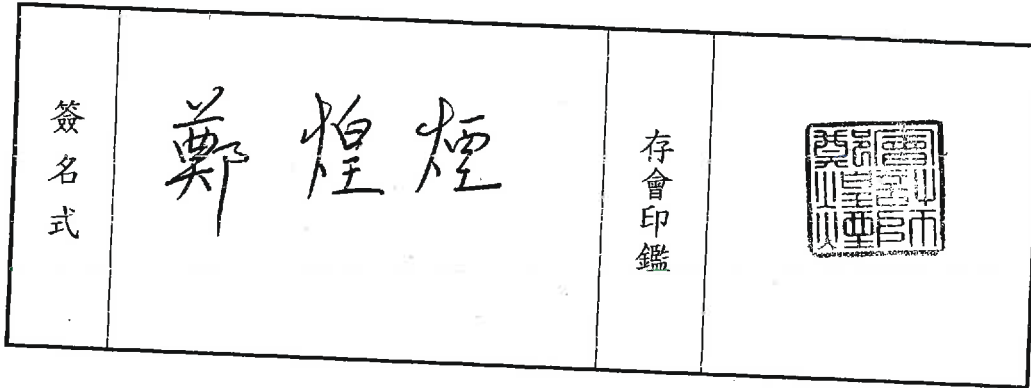 簽名式
鄭煌煙
存會印鑑